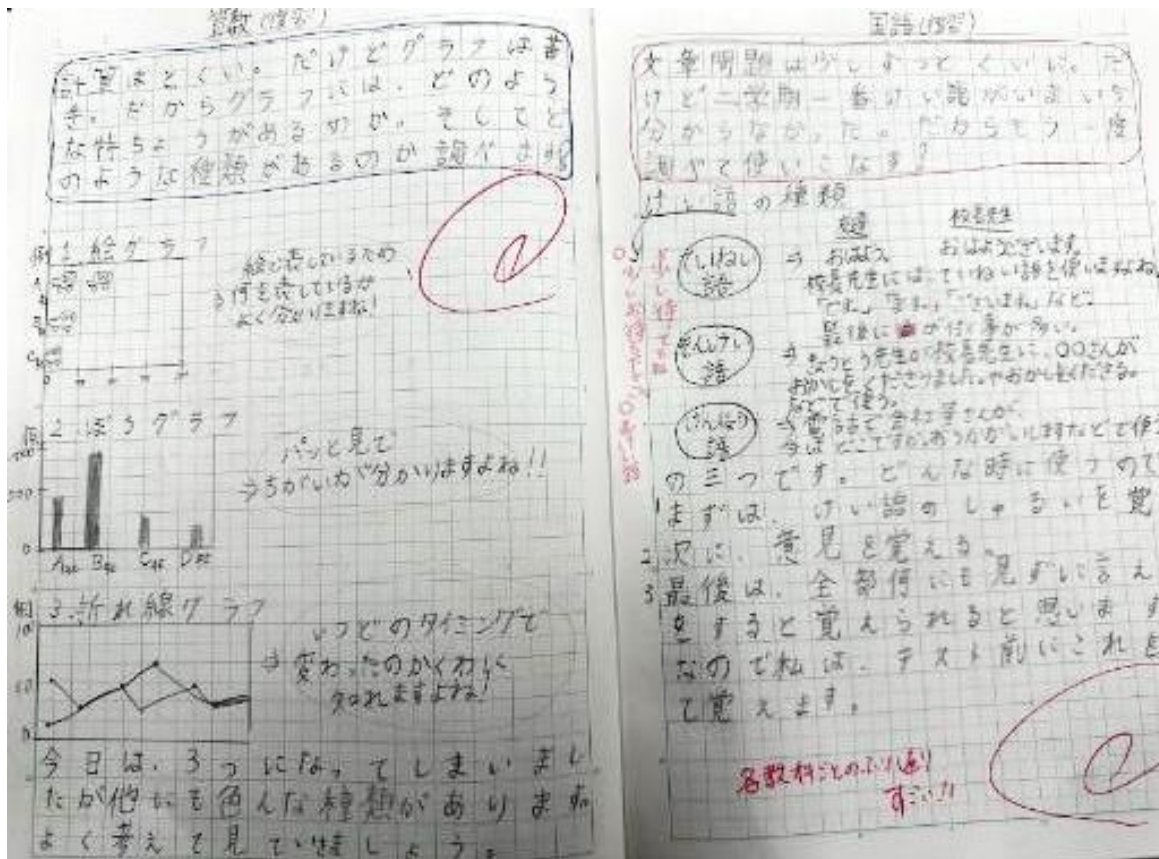 算数(復習)
計算はとくい。だけどグラフは苦
き。だからグラフには、どのよう
な特ちょうがあるのか。そしてど
のような種類があるのか調べま
例 1.絵グラフ
絵で表しているため
→何を表しているか
よく分かりますね!
2 ぼうグラフ
パッと見て
→ちがいが分かりますよね!!
A B C D
例 3.折れ線グラフ
いつどのタイミングで
→変わったのかくわしく
知れますよね!
今日は、3つになってしまいまし
たが他にも色んな種類があります
よく考えて見ていきましょう。
国語(復習)
文章問題は少しょっとくいに。だ
けど二学期一番けい語がいまいち
分からなかった。だからもう一度
調べて使いこなす!
けい語の種類
友達 校長先生
ていねい語 → おはよう。 おはようございます。
校長先生には、ていねい語を使いますよね。
「です。」「ます。」「ございます。」など。
最後に が付く事が多い。
そんけい語 → きょうとう先生が校長先生に、〇〇さんが
おかしをくださりました。やおかしをくださる。
などで使う。
けんじょう語 → 会社員さんが、
今はどこですか。おうかがいしますなどで使
の三つです。どんな時に使うので
1 まずは、けい語のしゅるいを覚
2 次に、意見を覚える。
3 最後は、全部何にも見ずに言え
をすると覚えられると思います
なので私は、テスト前にこれを
て覚えます。
各教科ごとのふり返り
すごい!!